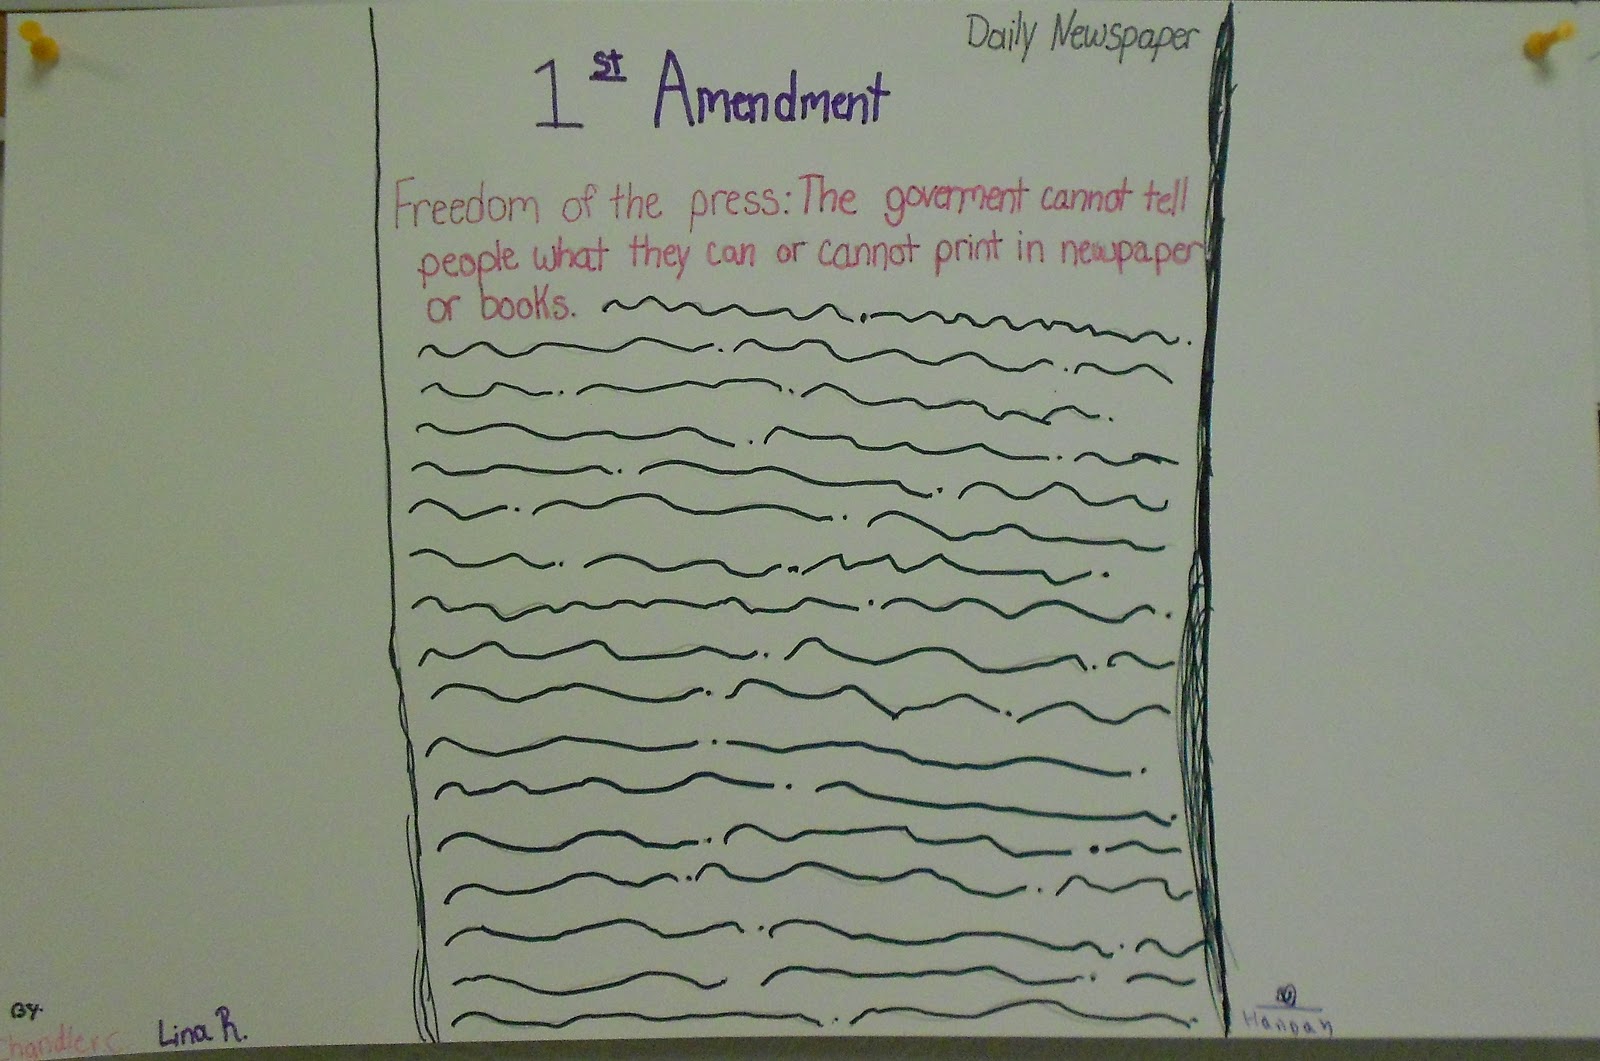 Daily Newspaper
1st Amendment
Freedom of the press: The goverment cannot tell
people what they can or cannot print in newpaper
or books.
By.
Chandler C.
Lina R.
Hannah